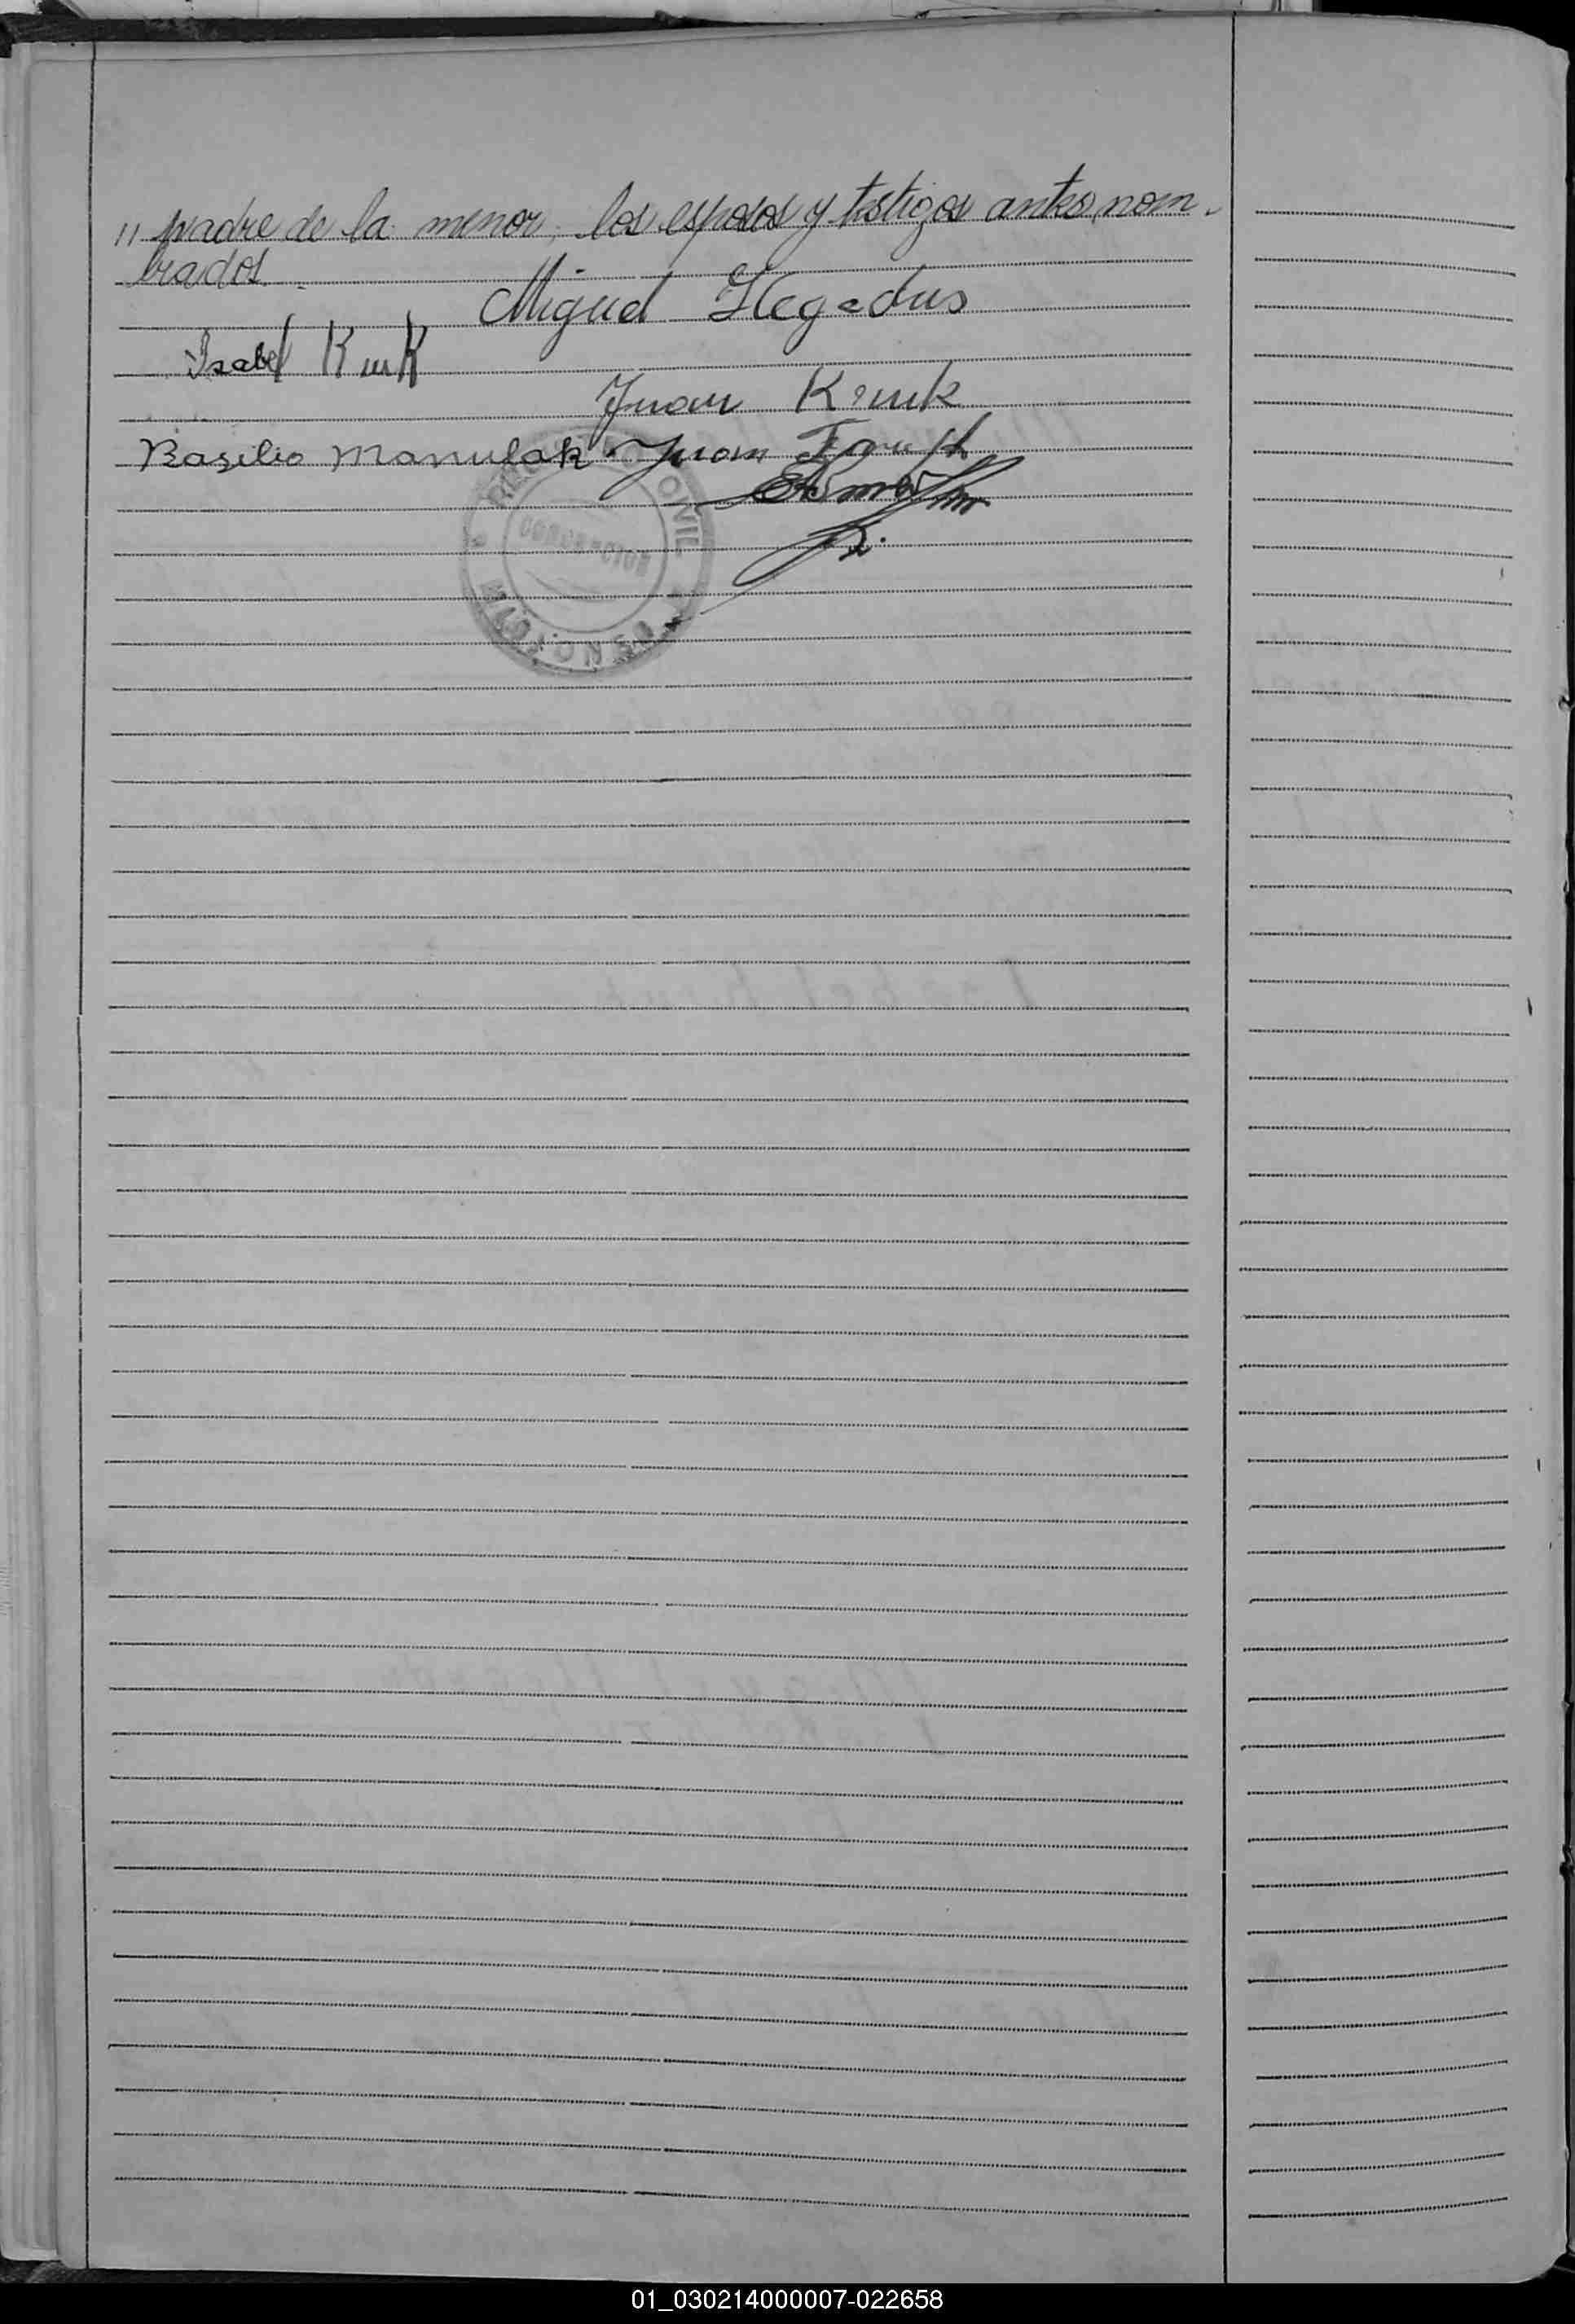 " padre de la menor, los esposos y testigos antes nom-
brados.
Miguel Hegedus
Isabel Kuk
Juan Kruk
Basilio Manulak. Juan
REGISTRO CIVIL
01_030214000007-022658